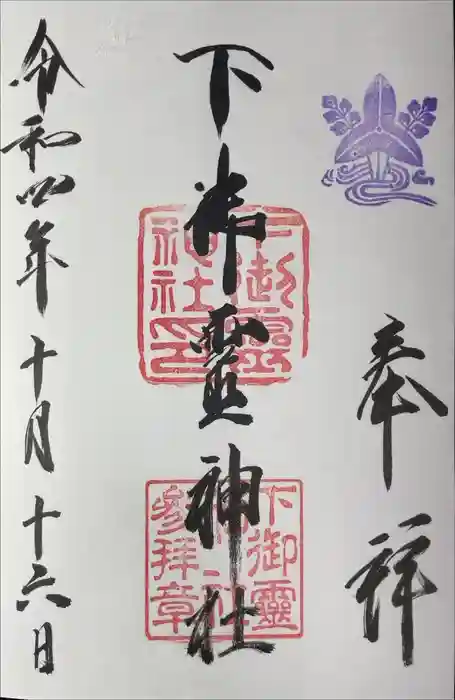 奉拝
下御靈神社
下御靈神社印
下御靈神社参拜章
令和四年十月十六日